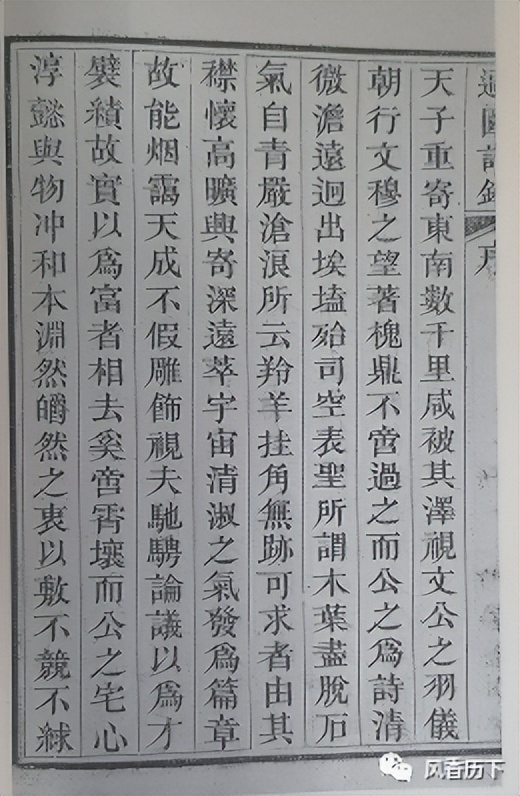 詩鈔 序
天子重寄東南數千里咸被其澤視文公之羽儀
朝行文穆之望著槐鼎不啻過之而公之爲詩清
微澹遠迥出埃壒殆司空表聖所謂木葉盡脫石
氣自青嚴滄浪所云羚羊挂角無跡可求者由其
襟懷高曠興寄深遠萃宇宙清淑之氣發爲篇章
故能烟靄天成不假雕飾視夫馳騁論議以爲才
襞績故實以爲富者相去奚啻霄壤而公之宅心
淳懿與物冲和本淵然皭然之衷以敷不競不絿
风香历下